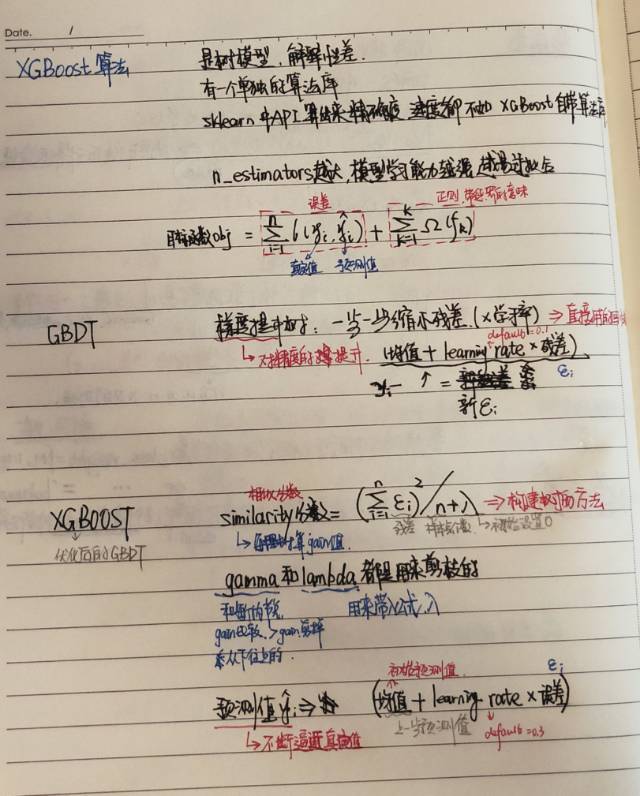 Date. /
XGBoost 算法
是树模型，解释性差.
有一个单独的算法库
sklearn 中API 算出来精确度 速度都不如 XGBoost自带算法库
n_estimators越大，模型学习能力越强，越易过拟合
误差
正则，
目标函数Obj = \sum_{i=1}^{n} l(y_i, \hat{y}_i) + \sum_{k=1}^{k} Ω(f_k)
真实值 预测值
GBDT
梯度提升树：一步一步缩小残差.（×学习率）⇒直接用的
default=0.1
↳ 对精度的提升. (均值 + learning rate × 残差)
y_i - ↑ = ε_i
新ε_i
相似分数
XGBOOST
similarity分数 = (\sum_{i=1}^{n} ε_i)^2 / n+λ ⇒构建树的方法
残差 样本个数 ↳初始设置0
优化后的GBDT
↳ 每棵树算gain值.
gamma 和 lambda 都是用来剪枝的
用来带入公式 λ
gain比较, >gain剪掉
是从下往上的.
初始预测值 ε_i
预测值ŷ_i ⇒ (均值 + learning rate × 误差)
上一步预测值
default=0.3
↳ 不断逼近真实值